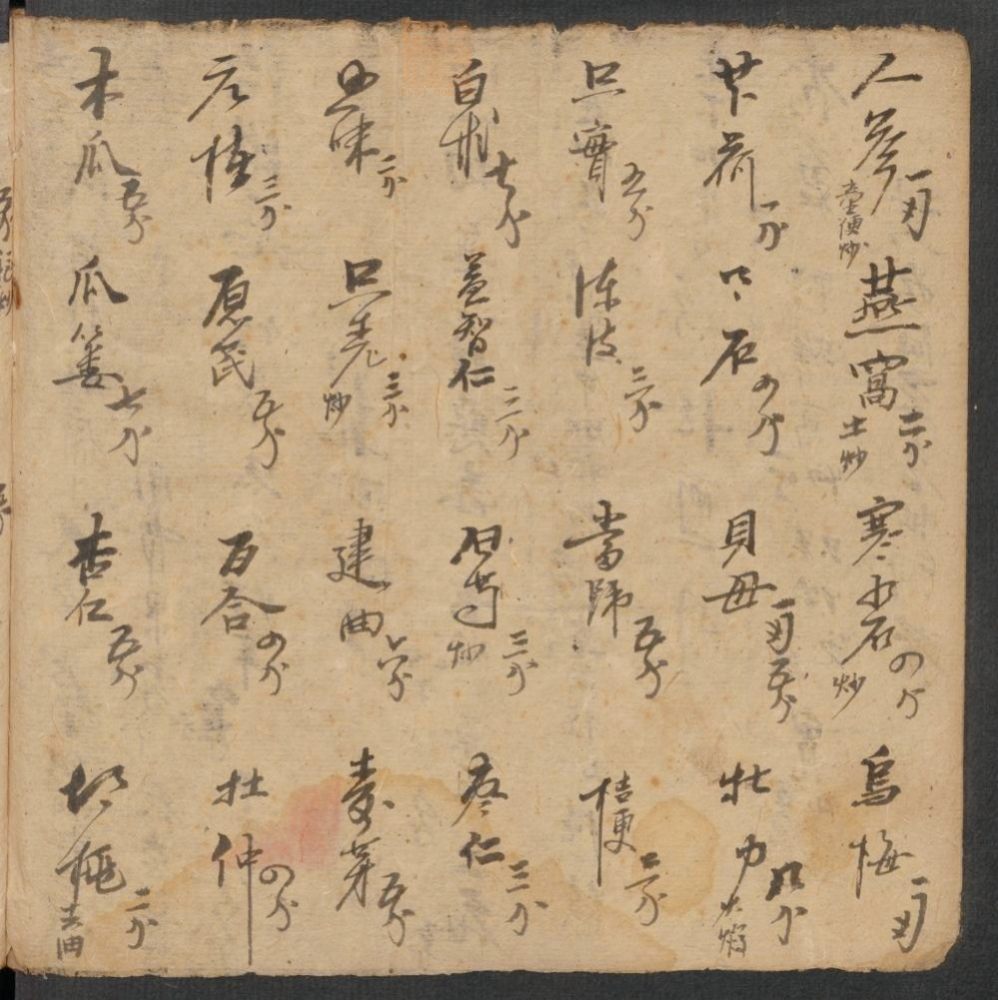 人參一刃童便炒 燕窩二分土炒 寒水石四分炒 烏梅一刃
卜荷一分 石四分 貝母一刃五分 牡力四分火煅
只實五分 陳皮二分 當歸五分 桔更二分
白朮七分 益智仁三分 炒三分 棗仁三分
五味二分 只壳三分炒 建曲六分 麥芽五分
三分 五分 百合四分 杜仲四分
木瓜五分 瓜蔞七分 杏仁五分 胡桃二分去油